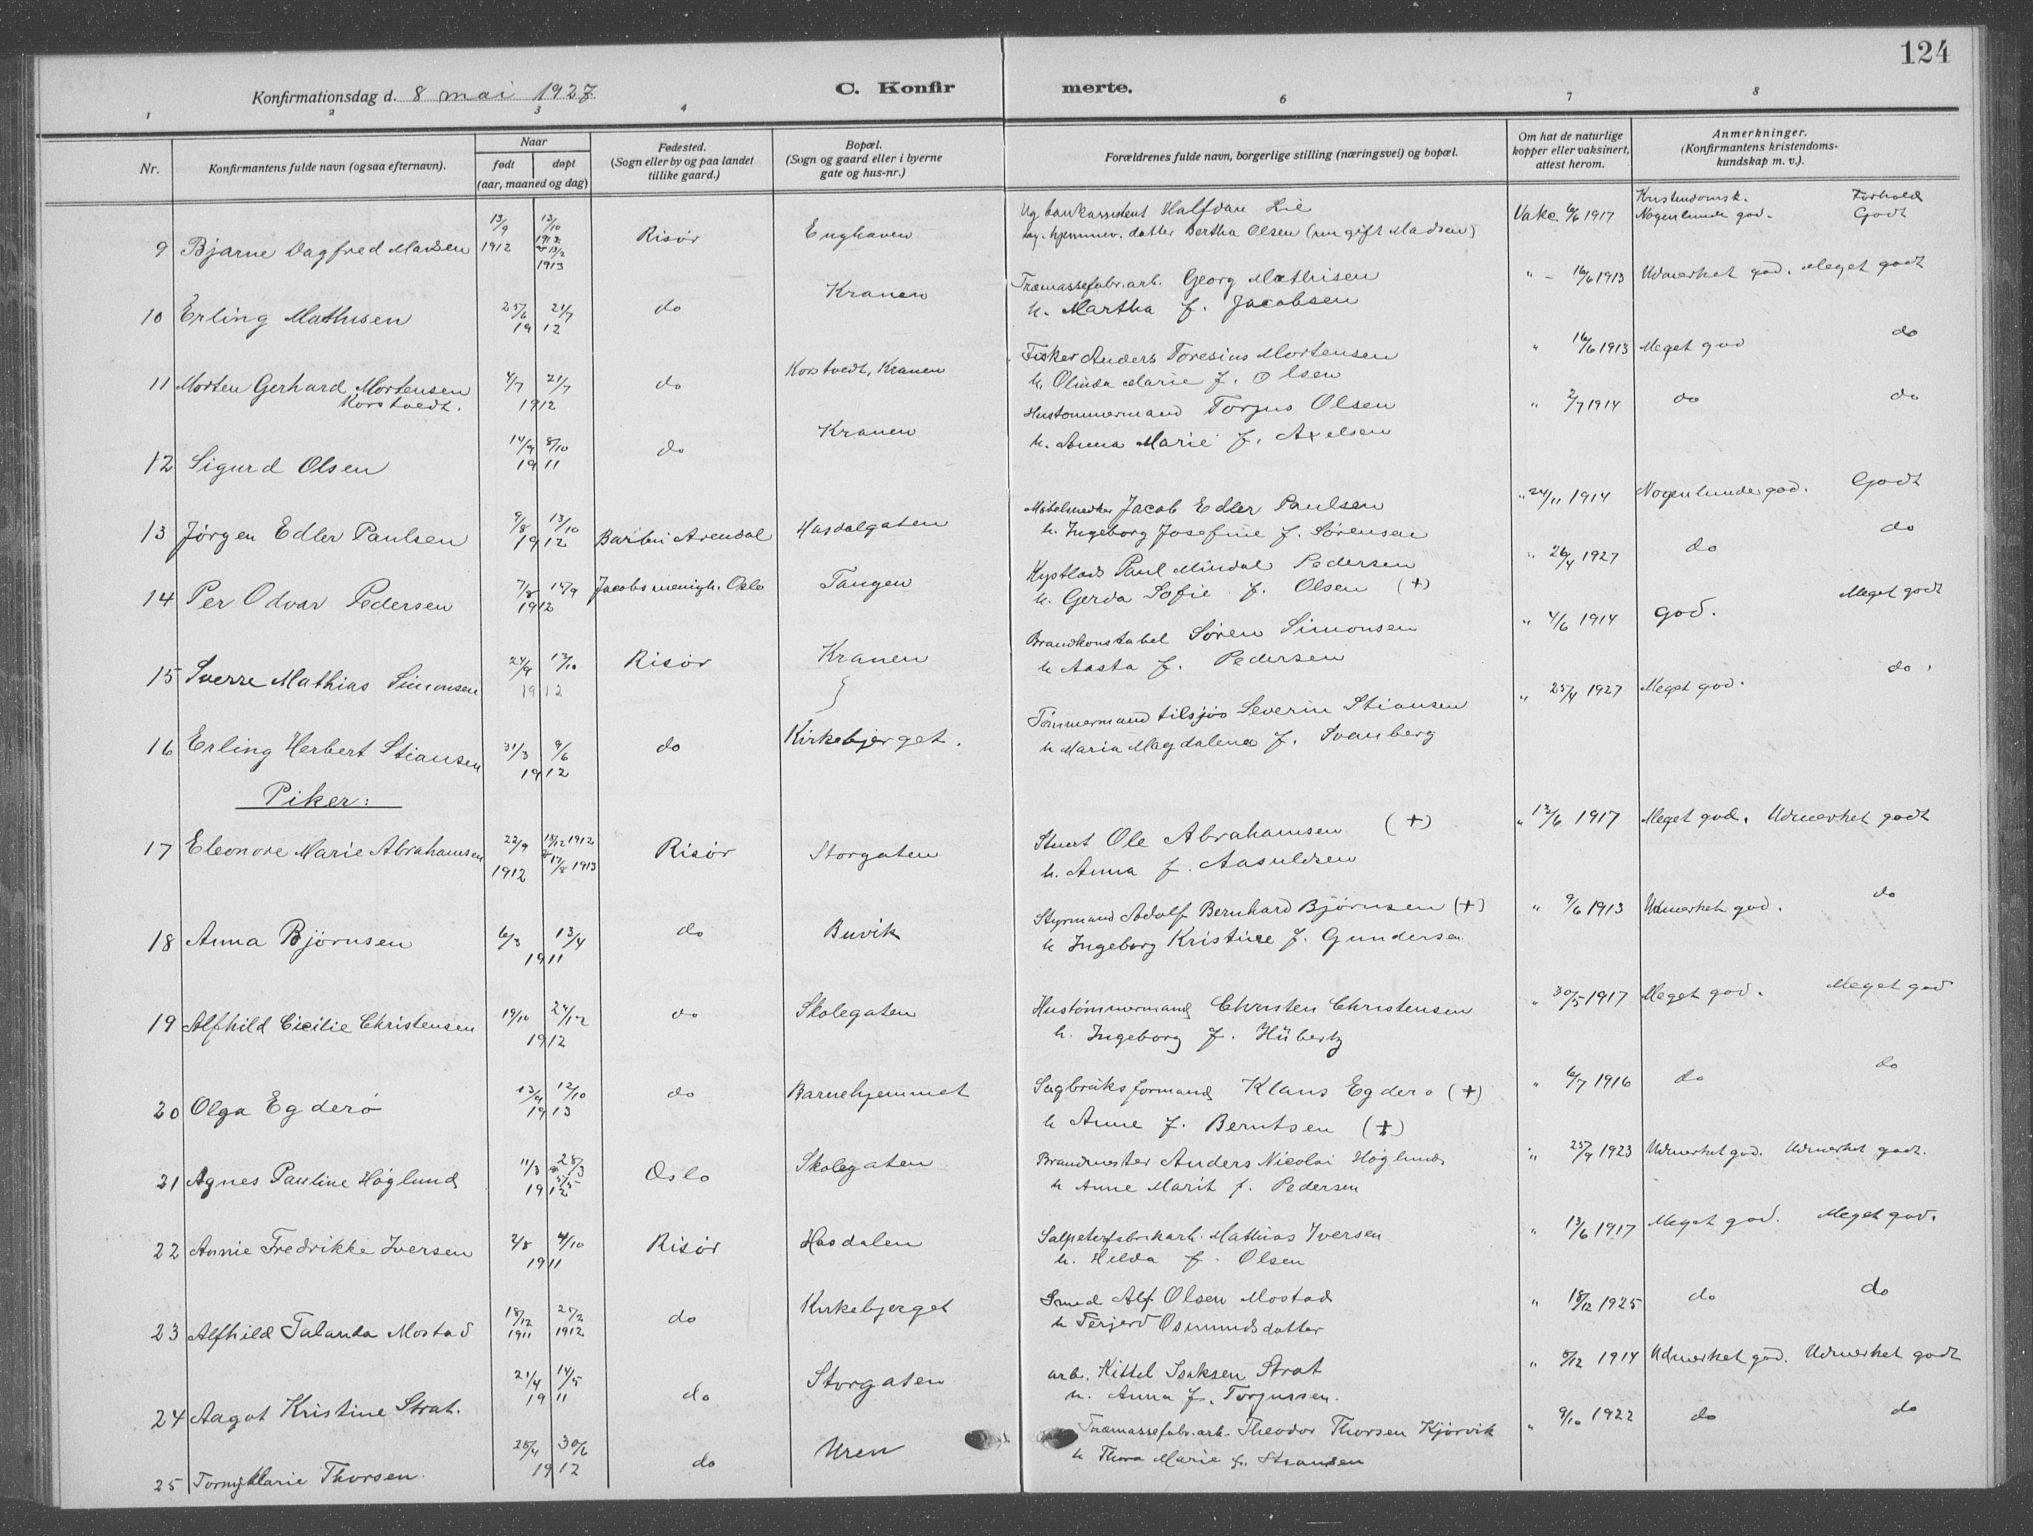 124
Konfirmationsdag d. 8 mai 1927
C. Konfir merte.
1 2 3 4 6 7 8
Nr.
Konfirmantens fulde navn (ogsaa efternavn).
Naar
født døpt
(aar, maaned og dag)
Fødested.
(Sogn eller by og paa landet
tillike gaard.)
Bopæl.
(Sogn og gaard eller i byerne
gate og hus-nr.)
Forældrenes fulde navn, borgerlige stilling (næringsvei) og bopæl.
Om hat de naturlige
kopper eller vaksinert,
attest herom.
Anmerkninger.
(Konfirmantens kristendoms-
kundskap m. v.).
Kristendomsk. Forhold
9 Bjarne Dagfred Madsen 13/9 1912 13/10 1912 13/2 1913 Risør Enghaven
Ug. bankassistent Halfdan Lie
og hjemmev. datter Bertha Olsen (nu gift Madsen)
Vakc. 6/6 1917 Nogenlunde god. Godt
10 Erling Mathisen 25/6 21/7 1912 do Kranen
Træmassefabr.arb. Georg Mathisen
h. Martha f. Jacobsen
" - 16/6 1913 Udmerket god. Meget godt
11 Morten Gerhard Mortensen
Korstvedt. 4/7 21/7 1912 do Korstvedt, Kranen
Fisker Anders Toresius Mortensen
h. Olinda Marie f. Olsen
" 16/6 1913 Meget god do
12 Sigurd Olsen 14/9 8/10 1911 do Kranen
Hustømmermand Torjus Olsen
h. Anna Marie f. Axelsen
" 2/7 1914 do do
13 Jørgen Edler Paulsen 9/8 13/10 1912 Barbu Arendal Hasdalgaten
Møbelsnedker Jacob Edler Paulsen
h. Ingeborg Josefine f. Sørensen
" 24/11 1914 Nogenlunde god. Godt
14 Per Odvar Pedersen 7/8 15/9 1912 Jacobs menigh. Oslo Tangen
Kystlods Paul Mindal Pedersen
h. Gerda Sofie f. Olsen (+)
" 26/4 1927 do do
15 Sverre Mathias Simonsen 24/9 13/10 1912 Risør Kranen
Brandkonstabel Søren Simonsen
h Aasta f. Pedersen
" 4/6 1914 god. Meget godt
16 Erling Herbert Stiansen 31/3 9/6 1912 do Kirkebjerget.
Tømmermand tilsjøs Severin Stiansen
h Maria Magdalena f. Svanberg
" 25/4 1927 Meget god. do
Piker:
17 Eleonore Marie Abrahamsen 22/9 1912 18/12 1912 17/8 1913 Risør Storgaten
Stuert Ole Abrahamsen (+)
h. Anna f. Aasuldsen
" 13/6 1917 Meget god. Udmerket godt
18 Anna Bjørnsen 6/3 13/4 1911 do Buvik
Styrmand Adolf Bernhard Bjørnsen (+)
h Ingeborg Kristine f. Gundersen
" 9/6 1913 Udmerket god. do
19 Alfhild Cicilie Christensen 19/10 24/12 1912 do Skolegaten
Hustømmermand Christen Christensen
h. Ingeborg f. Hübertz
" 30/5 1917 Meget god. Meget god
20 Olga Egderø 13/9 12/10 1913 do Barnehjemmet
Sagbruksformand Klaus Egdero (+)
h Anne f. Berntsen (+)
" 6/7 1916 do do
21 Agnes Pauline Høglund 11/3 28/3 1912 Oslo Skolegaten
Brandmester Anders Nicolai Høglund
h Anne Marit f. Pedersen
" 25/9 1923 Udmerket god. Udmerket godt.
22 Annie Fredrikke Iversen 2/8 4/10 1911 Risør Hasdalen
Salpeterfabrikarb. Mathias Iversen
h. Hilda f. Olsen
" 13/6 1917 Meget god. Meget god.
23 Alfhild Talanda Mostad 18/12 1911 25/2 1912 do Kirkebjerget
Smed Alf Olsen Mostad
h Terjerd Osmundsdatter
" 18/12 1925 do do
24 Aagot Kristine Strat. 21/4 14/5 1911 do Storgaten
arb. Kittel Isaksen Strat
h. Anna f. Torjussen.
" 5/12 1914 Udmerket god. Udmerket godt
25 Torny Marie Thorsen. 25/4 30/6 1912 do Uren
Træmassefabr.arb. Theodor Thorsen Kjørvik
h Thora Marie f. Stiansen
" 9/10 1922 do do